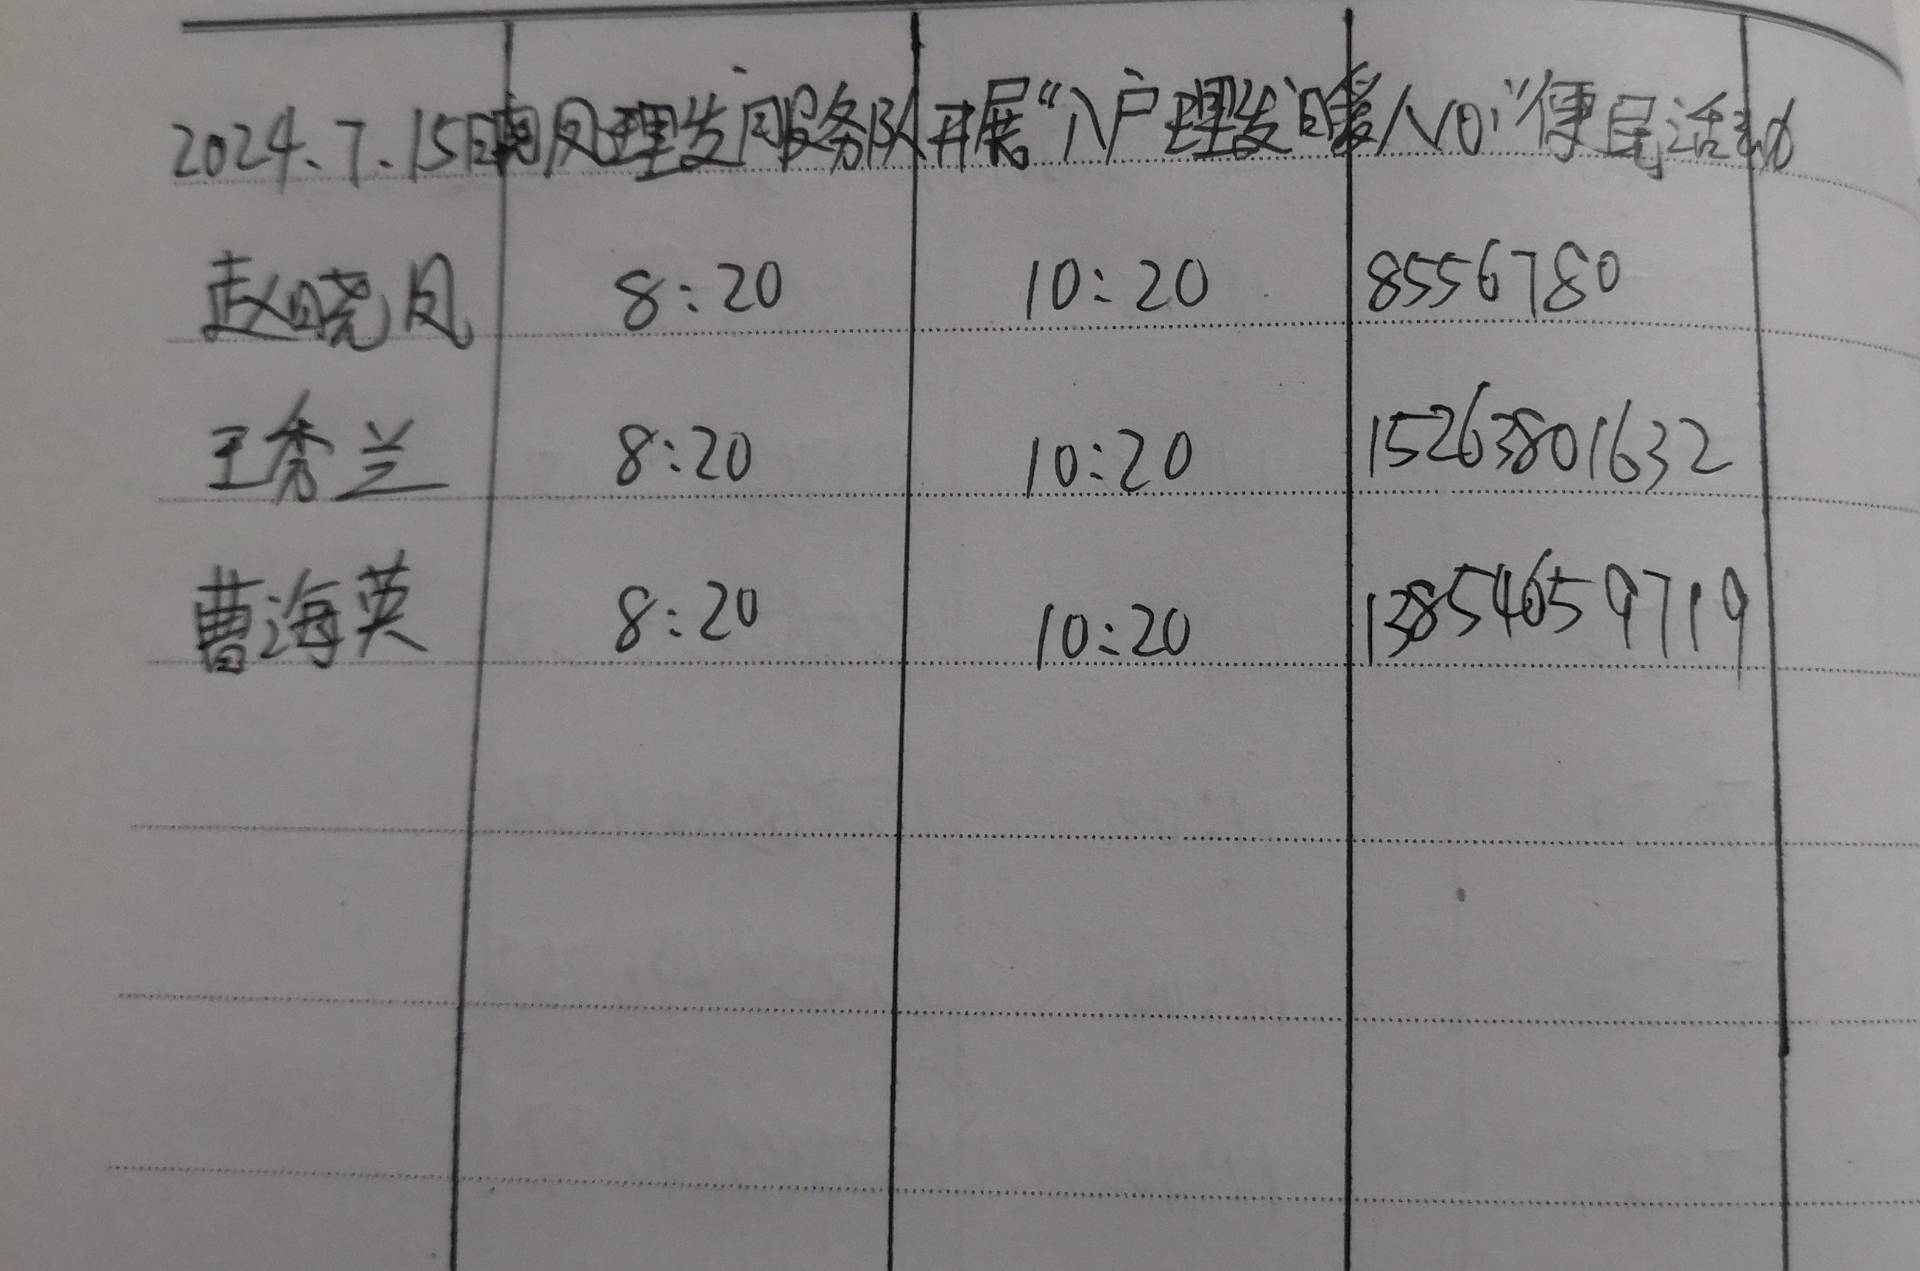 2024.7.15日晓凤理发服务队开展“入户理发暖人心”便民活动
赵晓凤 8:20 10:20 8556780
王秀兰 8:20 10:20 15263801632
曹海英 8:20 10:20 13854659719